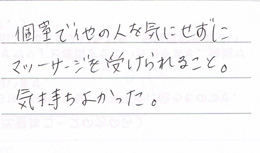 個室で他の人を気にせずに
マッサージを受けられること。
気持ちよかった。